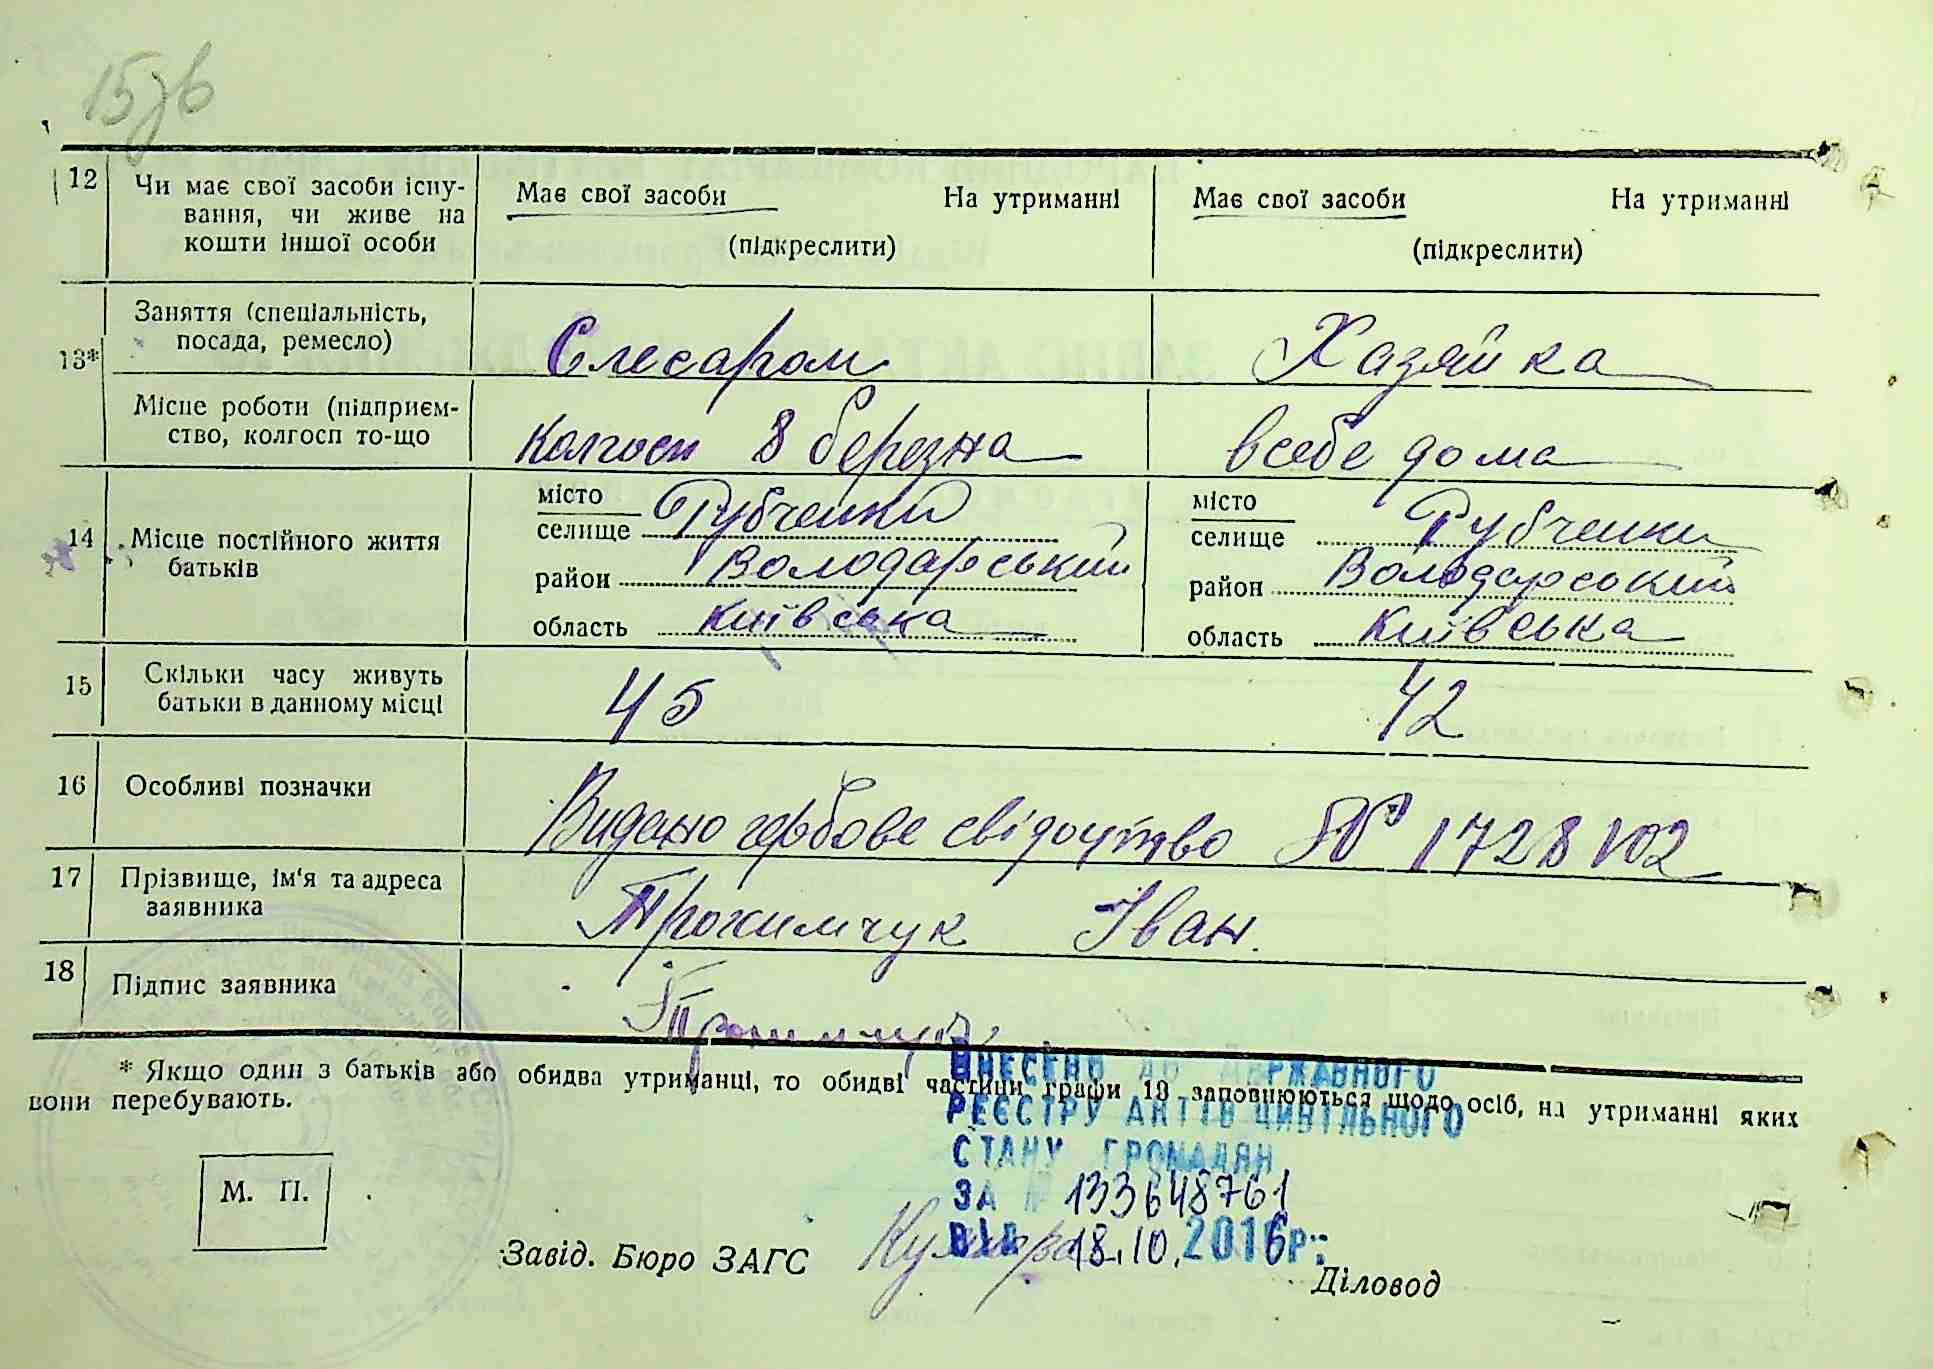 15зв
12 Чи має свої засоби існу- Має свої засоби На утриманні Має свої засоби На утриманні
вання, чи живе на
кошти іншої особи (підкреслити) (підкреслити)
13* Заняття (спеціальність,
посада, ремесло) Слесаром Хазяйка
Місце роботи (підприєм-
ство, колгосп то-що Колгосп 8 березна всебе дома
14 Місце постійного життя
батьків
місто
селище Рубченки
район Володарський
область Київська
місто
селище Рубченки
район Володарський
область Київська
15 Скільки часу живуть
батьки в данному місці 45 42
16 Особливі позначки Видано гербове свідоцтво № 1728102
17 Прізвище, ім'я та адреса
заявника Трохимчук Іван
18 Підпис заявника Трохимчук
* Якщо один з батьків або обидва утриманці, то обидві частини графи 13 заповнюються щодо осіб, на утриманні яких
вони перебувають.
ВНЕСЕНО ДО ДЕРЖАВНОГО
РЕЄСТРУ АКТІВ ЦИВІЛЬНОГО
СТАНУ ГРОМАДЯН
ЗА № 133648761
ВІД 18.10.2016р.
М. П.
Завід. Бюро ЗАГС
Діловод